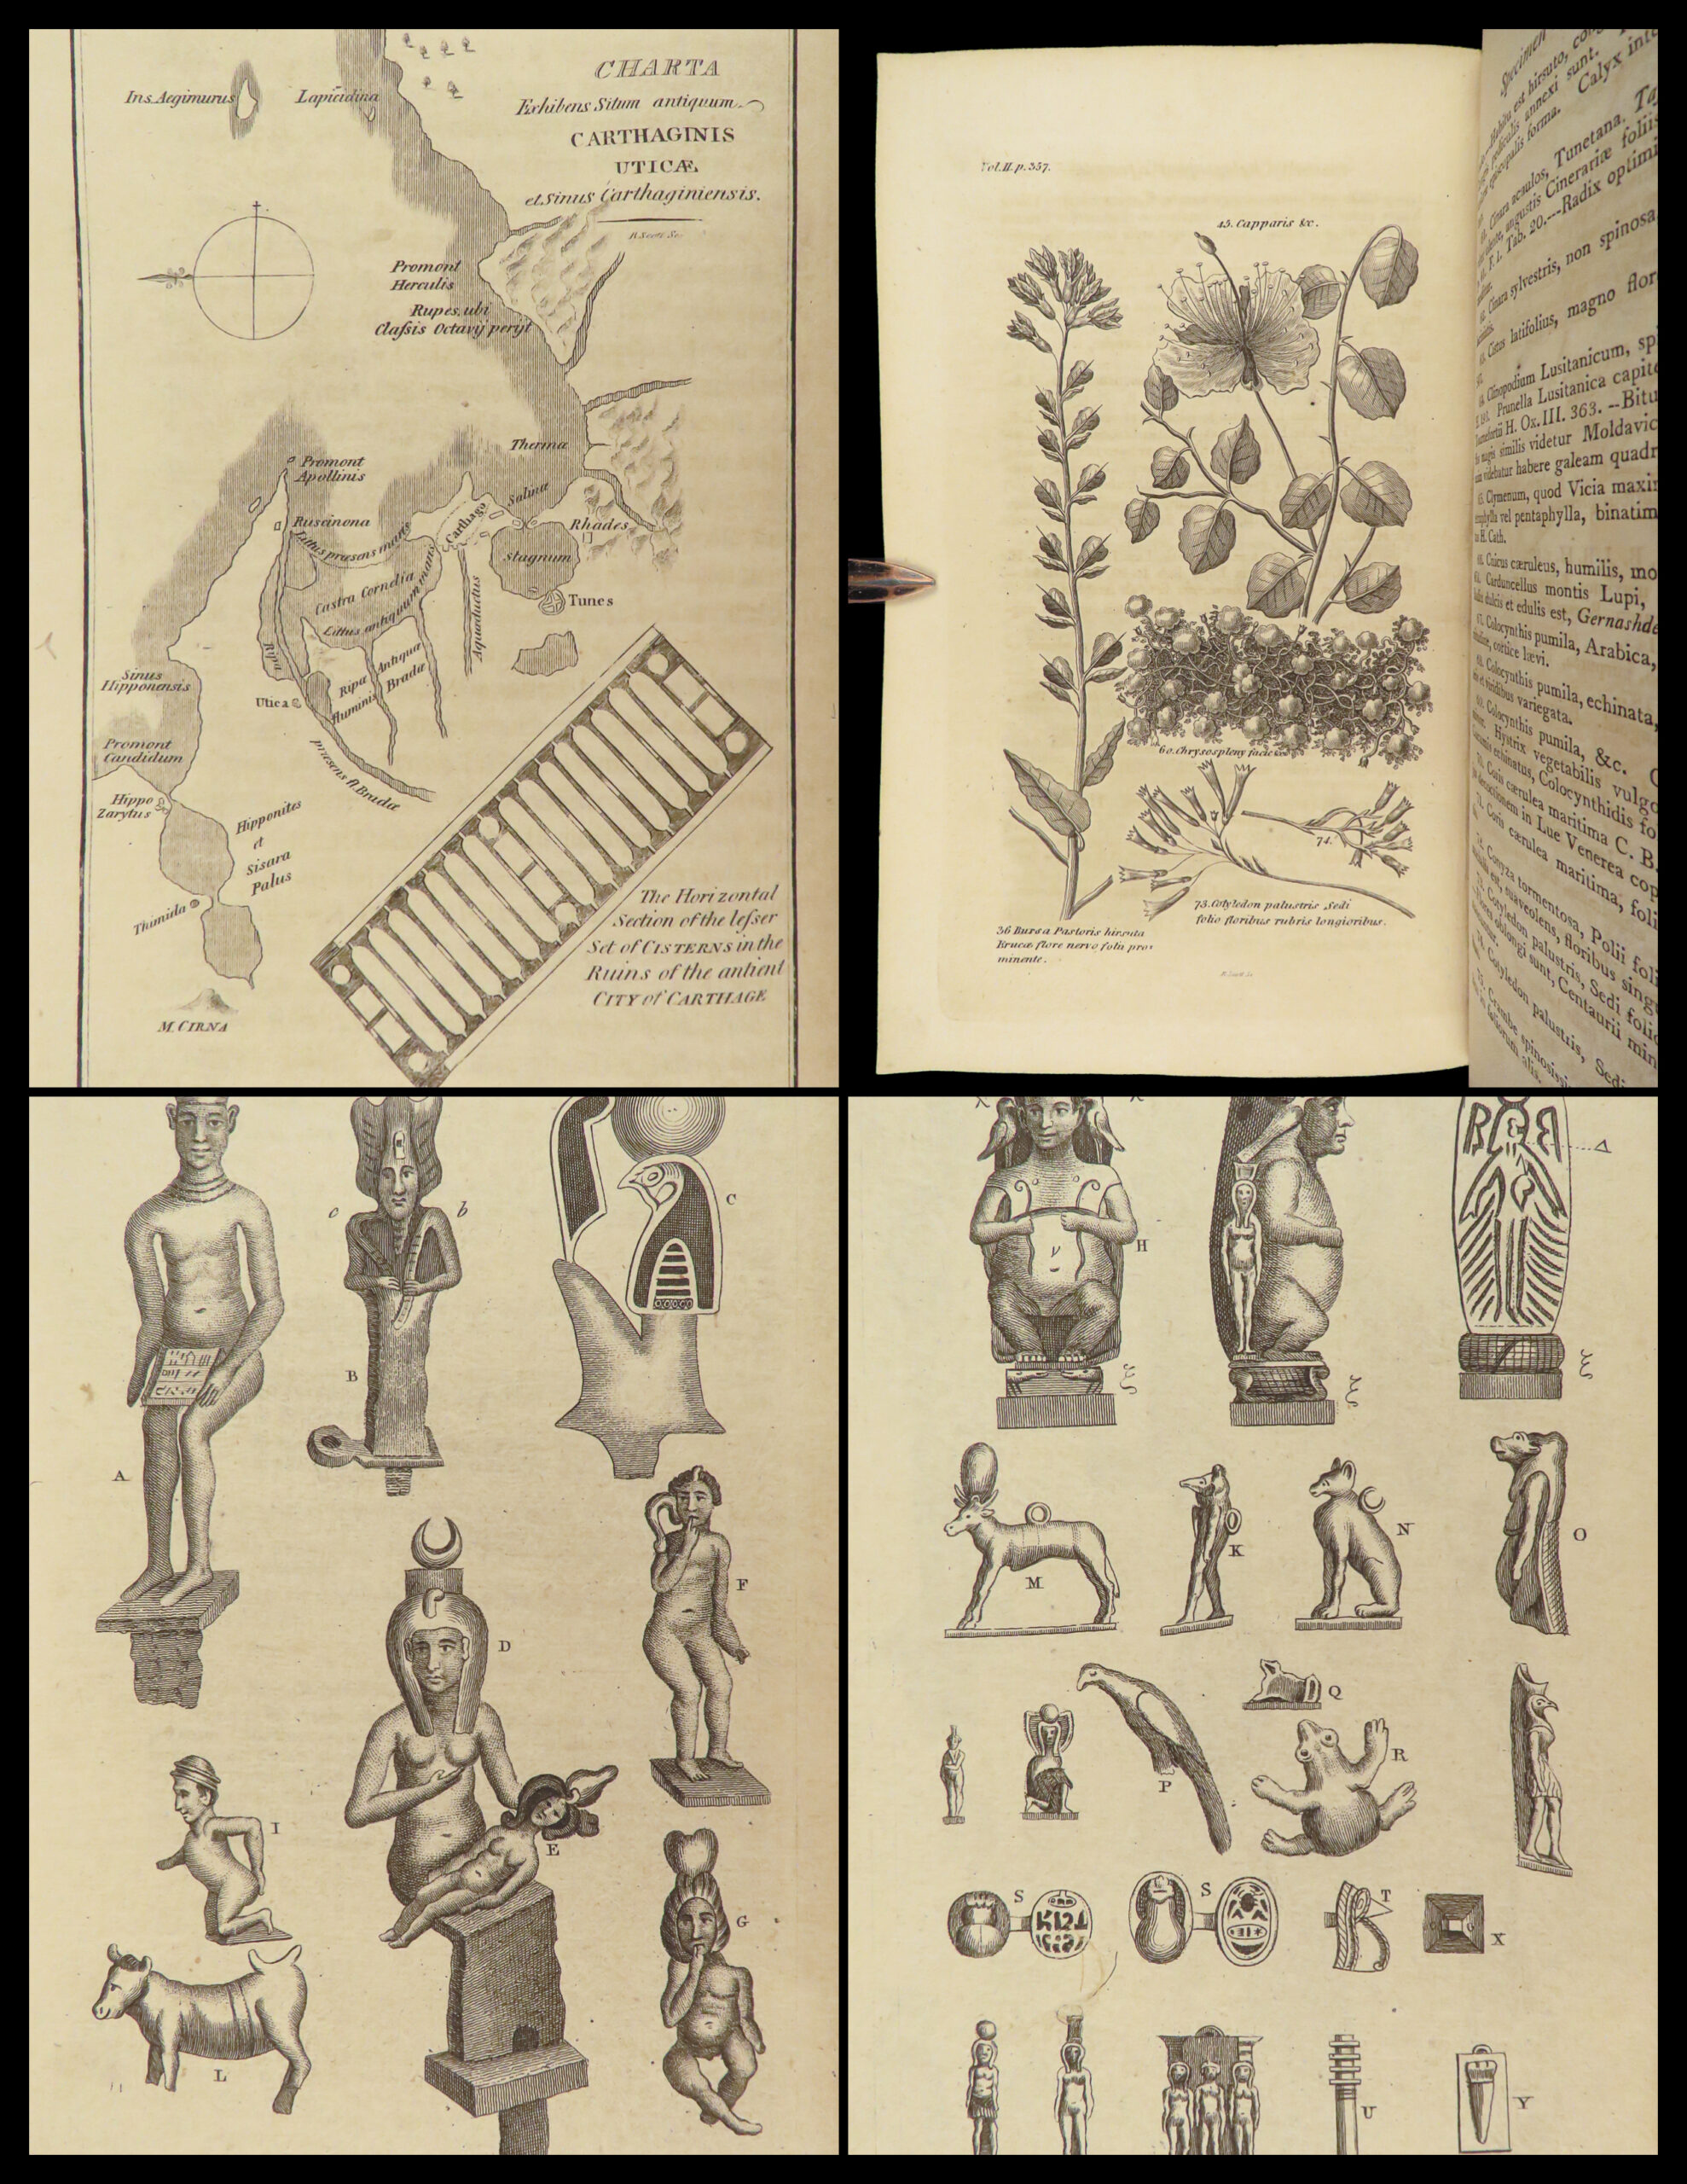 CHARTA
Exhibens Situm antiquum
CARTHAGINIS
UTICÆ
et Sinus Carthaginiensis.
R. Scott Sc.
Ins. Aegimurus
Lapicidina
Promont
Herculis
Rupes, ubi
Claſsis Octavij perijt
Therma
Promont
Apollinis
Ruscinona
Littus præsens maris
Carthago
Salina
Rhades
Stagnum
Castra Cornelia
Littus antiquum maris
Aquæductus
Tunes
Ripa
Ripa Antiqua
fluminis Bradæ
Sinus
Hipponensis
Utica
præsens fl. Bradæ
Promont
Candidum
Hippo
Zarytus
Hipponites
et
Sisara
Palus
Thimida
M. CIRNA
The Horizontal
Section of the leſser
Set of CISTERNS in the
Ruins of the antient
CITY of CARTHAGE
Vol. II. p. 357.
45. Capparis &c.
60. Chrysospleny facie
74.
73. Cotyledon palustris Sedi
folio floribus rubris longioribus.
36 Bursa Pastoris hirsuta
Erucæ flore nervo folii pro-
minente.
R. Scott Sc.
Specimen
est hirsuto,
pediculis annexi sunt. Calyx
forma.
Cinara acaulos, Tunetana.
angustis Cinerariæ foliis
Tab. 20.---Radix optimi
Cinara sylvestris, non spinosa
Cistus latifolius, magno flor
Clinopodium Lusitanicum,
Prunella Lusitanica
H. Ox. III. 363. --Bitu
similis videtur Moldavic
videbatur habere galeam quadr
Clymenum, quod Vicia maxi
vel pentaphylla, binatim
H. Cath.
Cnicus cæruleus, humilis,
Carduncellus montis Lupi,
dulcis et edulis est, Gernashde
Colocynthis pumila, Arabica,
cortice lævi.
Colocynthis pumila, echinata,
et viridibus variegata.
Colocynthis pumila, &c.
Hystrix vegetabilis vulgo
echinatus, Colocynthidis fo
in Lue Venerea
Coris cærulea maritima C. B.
Coris cærulea maritima,
Conyza tormentosa, Polii
suaveolens, floribus
Cotyledon palustris, Sedi
oblongi sunt, Centaurii min
Cotyledon palustris, Sedi
Crambe spinosissi
foliorum alis.
c
b
C
B
A
F
D
I
E
G
L
Δ
H
ν
ξ
ξ
ξ
M
K
N
O
Q
P
R
S
S
T
X
U
Y